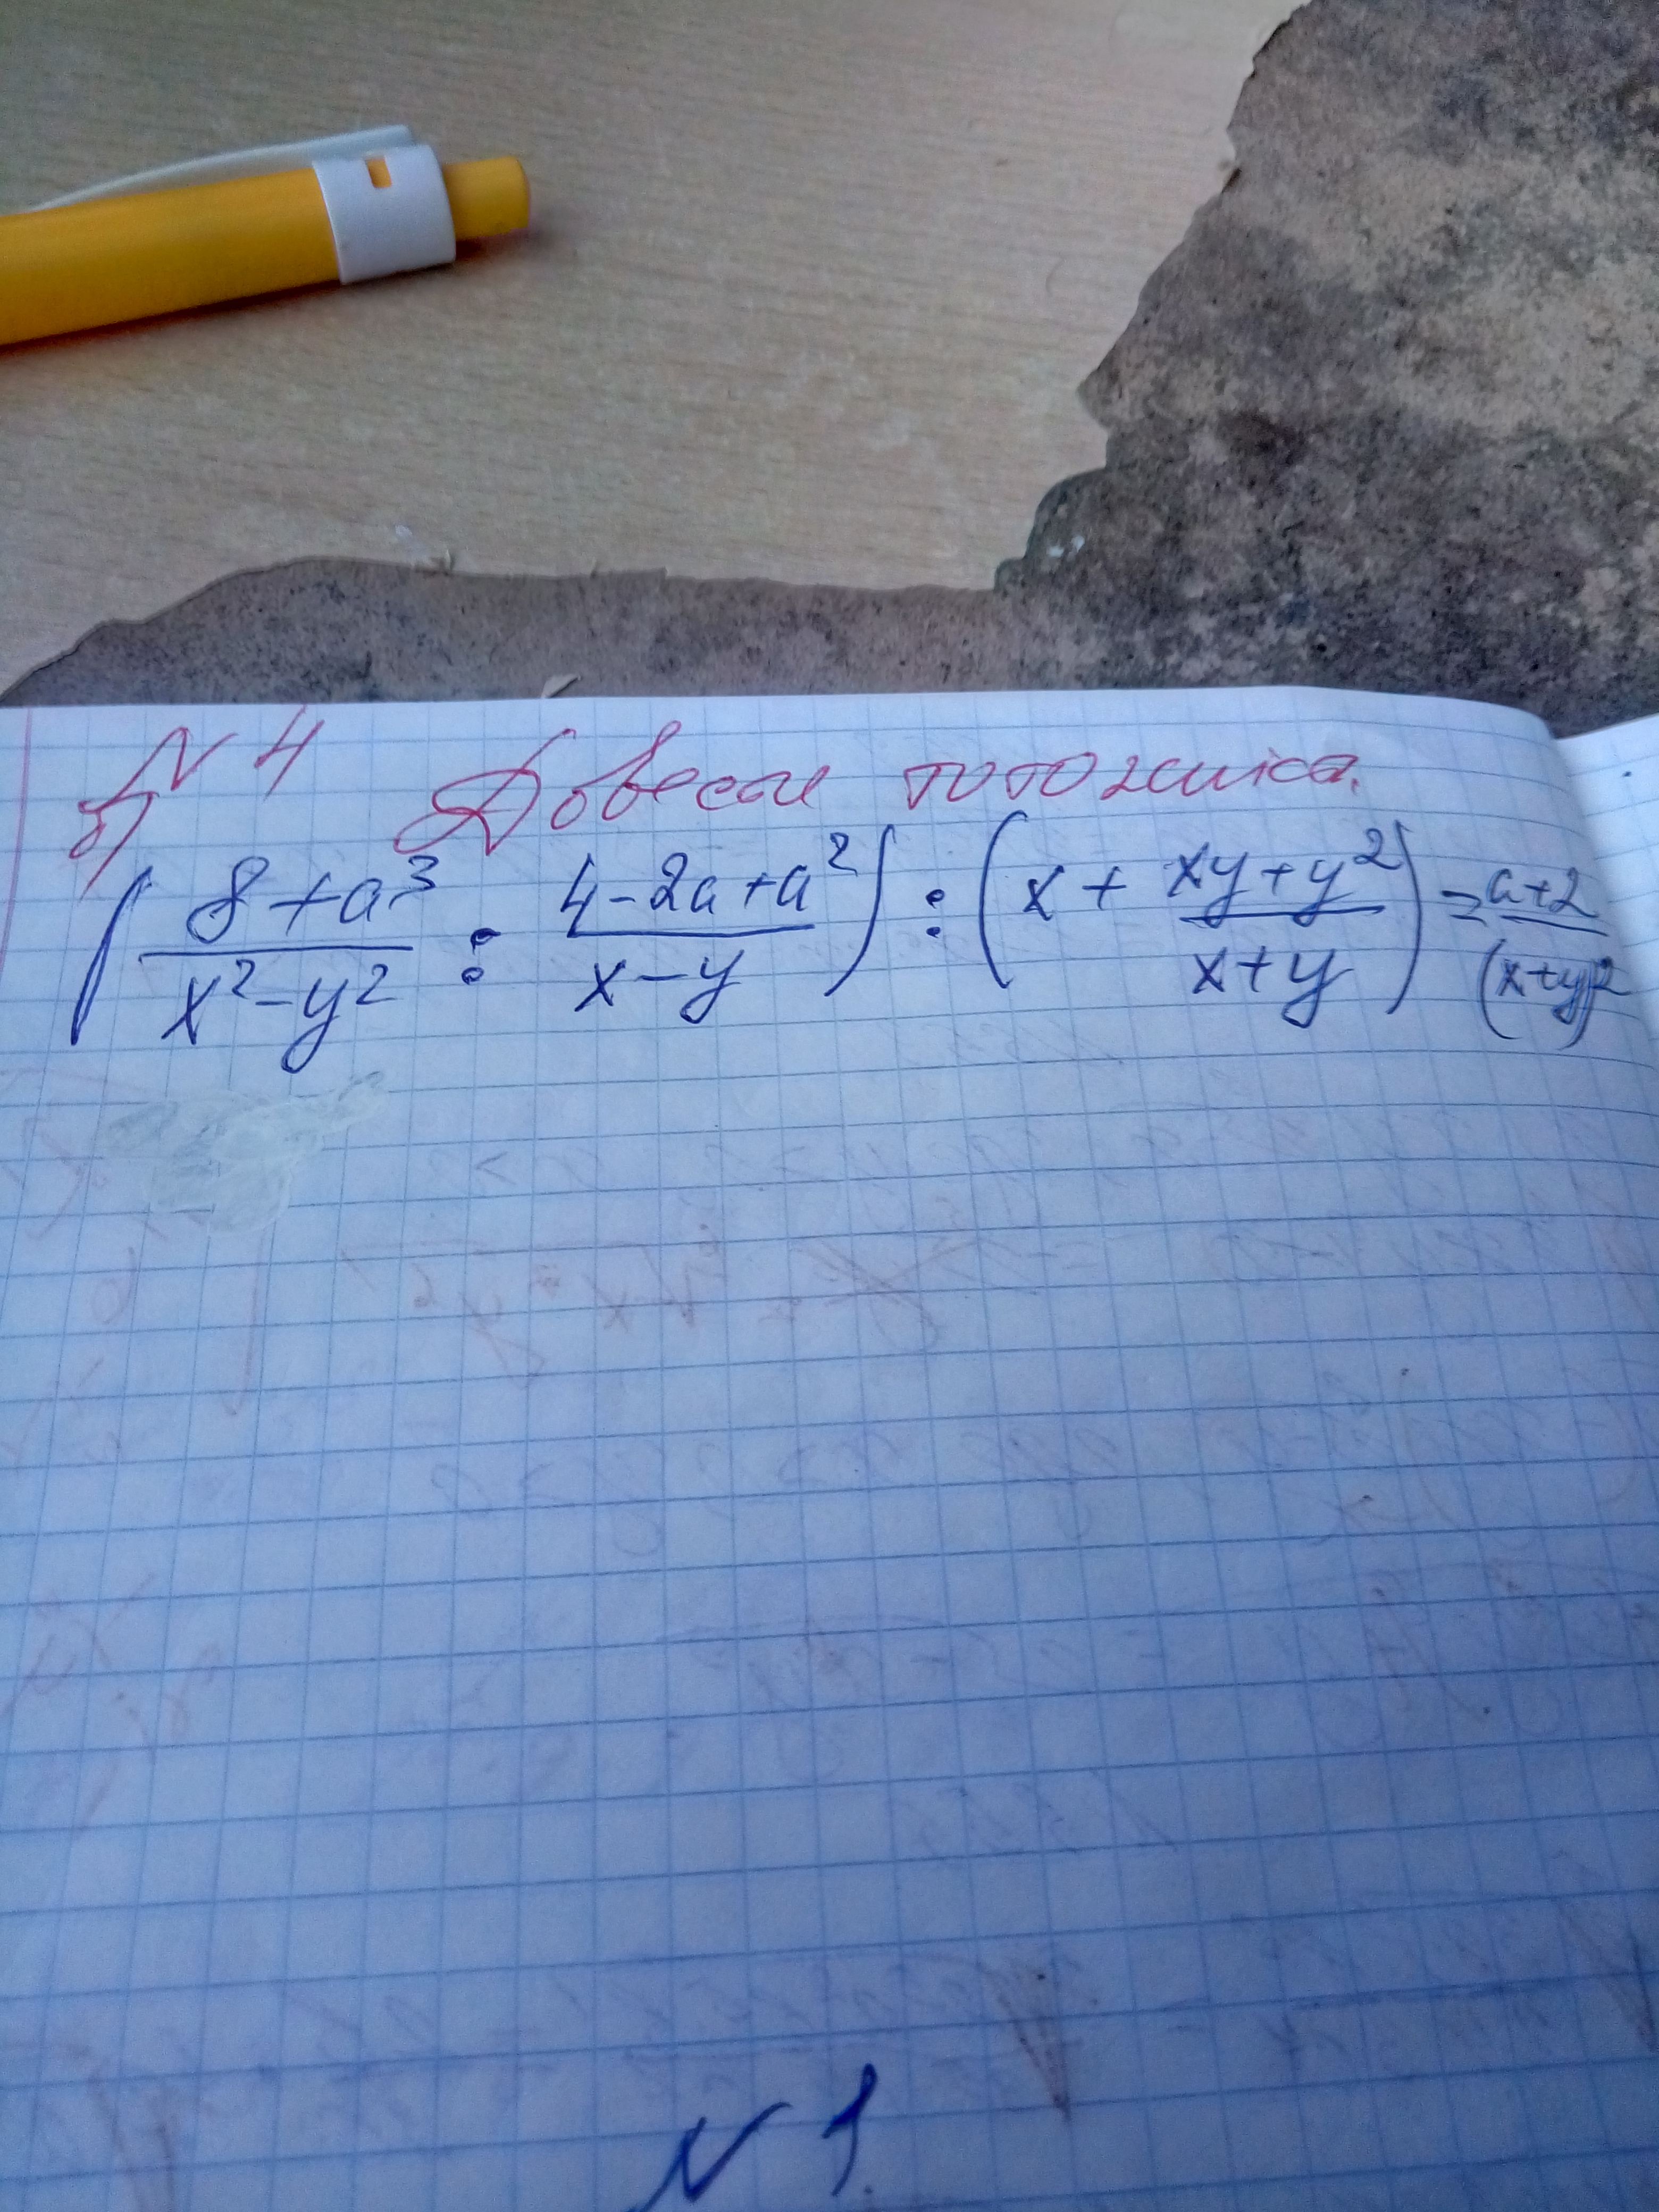 N 4 Довести тотожність.
б)
(8+a³/x²-y² : 4-2a+a²/x-y) : (x + xy+y²/x+y) = a+2/(x+y)²
N 1.